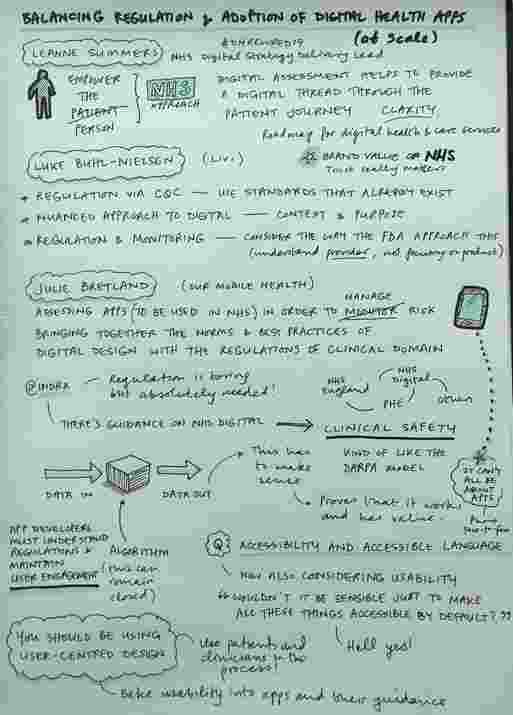 BALANCING REGULATION & ADOPTION OF DIGITAL HEALTH APPS
(at Scale)
LEANNE SUMMERS
NHS Digital Strategy Delivery Lead
EMPOWER
THE
PATIENT
PERSON
NHS
APPROACH
DIGITAL ASSESSMENT HELPS TO PROVIDE
A DIGITAL THREAD THROUGH THE
PATIENT JOURNEY CLARITY
Roadmap for digital health & care services
LUKE BUHL-NIELSEN (Livi)
BRAND VALUE OF NHS
Trust really matters
REGULATION VIA CQC — USE STANDARDS THAT ALREADY EXIST
NUANCED APPROACH TO DIGITAL — CONTEXT & PURPOSE
REGULATION & MONITORING — CONSIDER THE WAY THE FDA APPROACH THIS
(understand provider, not focusing on product)
JULIE BRETLAND (OUR MOBILE HEALTH)
MANAGE
ASSESSING APPS (TO BE USED IN NHS) IN ORDER TO MONITOR RISK
BRINGING TOGETHER THE NORMS & BEST PRACTICES OF
DIGITAL DESIGN WITH THE REGULATIONS OF CLINICAL DOMAIN
@INDRX — Regulation is boring
but absolutely needed!
NHS
England
NHS
Digital
PHE
others
THERE'S GUIDANCE ON NHS DIGITAL → CLINICAL SAFETY
KIND OF LIKE THE
DARPA MODEL
This has
to make
sense
DATA IN
DATA OUT
Proves that it works
and has value.
IT CAN'T
ALL BE
ABOUT
APPS
APP DEVELOPERS
MUST UNDERSTAND
REGULATIONS &
MAINTAIN
USER ENGAGEMENT
ALGORITHM
(this can
remain
closed)
Q ACCESSIBILITY AND ACCESSIBLE LANGUAGE
NOW ALSO CONSIDERING USABILITY
"WOULDN'T IT BE SENSIBLE JUST TO MAKE
ALL THESE THINGS ACCESSIBLE BY DEFAULT?"
Hell yes!
YOU SHOULD BE USING
USER-CENTRED DESIGN
Use patients and
clinicians in the
process!
Bake usability into apps and their guidance